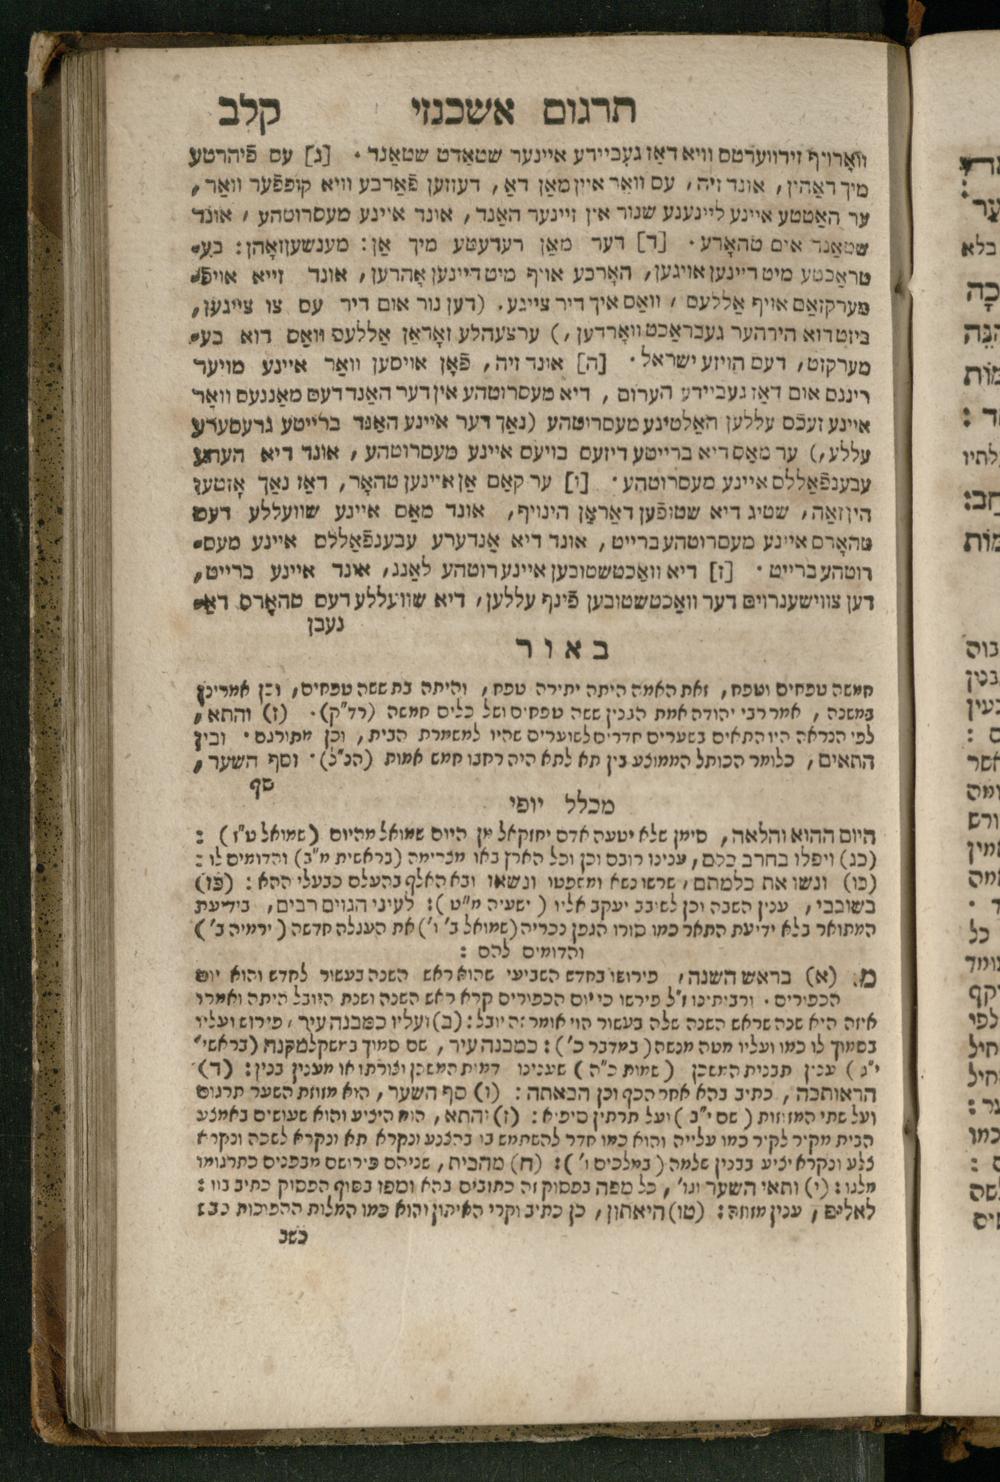 תרגום אשכנזי קלב
ווֹארויף זידווערטס וויא דאז געביידע איינער שטאדט שטאנד · [ג] עס פֿיהרטע
מיך דאהין, אונד זיה, עס וואר איין מאן דא, דעזזען פֿארבע וויא קופפֿער וואר,
ער האטטע איינע ליינענע שנור אין זיינער האנד, אונד איינע מעסרוטהע, אונד
שטאנד אים טהארע · [ד] דער מאן רעדעטע מיך אן: מענשעןזאהן: בע⸗
טראכטע מיט דיינען אויגען, הארכע אויף מיט דיינען אהרען, אונד זייא אויפֿ⸗
מערקזאם אויף אללעס, וואס איך דיר צייגע. (דען נור אום דיר עס צו צייגען,
ביזט דוא הירהער געבראכט ווארדען,) ערצעהלע זאדאן אללעס וואס דוא בע⸗
מערקזט, דעם הויזע ישראל · [ה] אונד זיה, פֿאן אויסען וואר איינע מויער
רינגס אום דאז געביידע הערום, דיא מעסרוטהע אין דער האנד דעס מאננעס וואר
איינע זעכס עללען האלטינע מעסרוטהע (נאך דער איינע האנד ברייטע גרעסערע
עללע,) ער מאס דיא ברייטע דיזעס בויעס איינע מעסרוטהע, אונד דיא העהע
עבענפֿאללס איינע מעסרוטהע · [ו] ער קאם אן איינען טהאר, דאז נאך אזטען
הין זאה, שטיג דיא שטופֿען דאראן הינויף, אונד מאס איינע שוועללע דעס
טהארס איינע מעסרוטהע ברייט, אונד דיא אנדערע עבענפֿאללס איינע מעס⸗
רוטהע ברייט · [ז] דיא וואכטשטובען איינע רוטהע לאנג, אונד איינע ברייט,
דען צווישענרוים דער וואכטשטובען פֿינף עללען, דיא שוועללע דעס טהארס דא⸗
נעבן
באור
חמשה טפחים וטפח, זאת האמה היתה יתירה טפח, והיתה בת ששה טפחים, וכן אמרינן
במשנה, אמר רבי יהודה אמת הבנין ששה טפחים ושל כלים חמשה (רד״ק) · (ז) והתא,
לפי הנראה היו התאים בשערים חדרים לשוערים שהיו למשמרת הבית, וכן מתורגם · ובין
התאים, כלומר הכותל הממוצע בין תא לתא היה רחבו חמש אמות (הנ״ל) · וסף השער,
סף
מכלל יופי
היום ההוא והלאה, סימן שלא יטעה אדם יחזקאל מן היום שמואל מהיום (שמואל ט״ז) :
(כג) ויפלו בחרב כלם, ענינו רובם וכן וכל הארץ באו מצרימה (בראשית מ״ב) והדומים לו :
(כו) ונשו את כלמתם, שרשו נשא ומשפטו ונשאו ובא האלף בהעלם כבעלי ההא : (כז)
בשובבי, ענין השבה וכן לשובב יעקב אליו (ישעיה מ״ט) : לעיני הגוים רבים, בידיעת
המתואר בלא ידיעת התאר כמו סורו הגפן נכריה (שמואל ב׳ ו׳) את העגלה חדשה (ירמיה ב׳)
והדומים להם :
מ (א) בראש השנה, פירושו בחדש השביעי שהוא ראש השנה בעשור לחדש והוא יום
הכפורים · ורבותינו ז״ל פירשו כי יום הכפורים קרא ראש השנה ושנת היובל היתה ואמרו
איזה היא שנה שראש השנה שלה בעשור הוי אומר זה יובל : (ב) ועליו כמבנה עיר, פירוש ועליו
בסמוך לו כמו ועליו מטה מנשה (במדבר כ׳) : כמבנה עיר, שם סמוך במשקל מקנה (בראשי׳
י״ג) ענין תבנית המשכן (שמות כ״ה) שענינו דמות המשכן וצורתו או מענין בנין : (ד)
הראותכה, כתיב בהא אחר הכף וכן הבאתה : (ו) סף השער, הוא מזוזת השער תרגום
ועל שתי המזוזות (שם י״ב) ועל תרתין סיפיא : (ז) והתא, הוא היציע והוא שעושים באמצע
הבית מקיר לקיר כמו עלייה והוא כמו חדר להשתמש בו בהצנע ונקרא תא ונקרא לשכה ונקרא
צלע ונקרא יציע בבנין שלמה (במלכים ו׳) : (ח) מהבית, שניהם פירושם מבפנים כתרגומו
מלגו : (י) ותאי השער וגו׳, כל מפה בפסוק זה כתובים בהא ומפו בסוף הפסוק כתיב בוו :
לאלים, ענין מזוזה : (טו) היאתון, כן כתיב וקרי האיתון והוא כמו המלות ההפוכות כבש
כשב